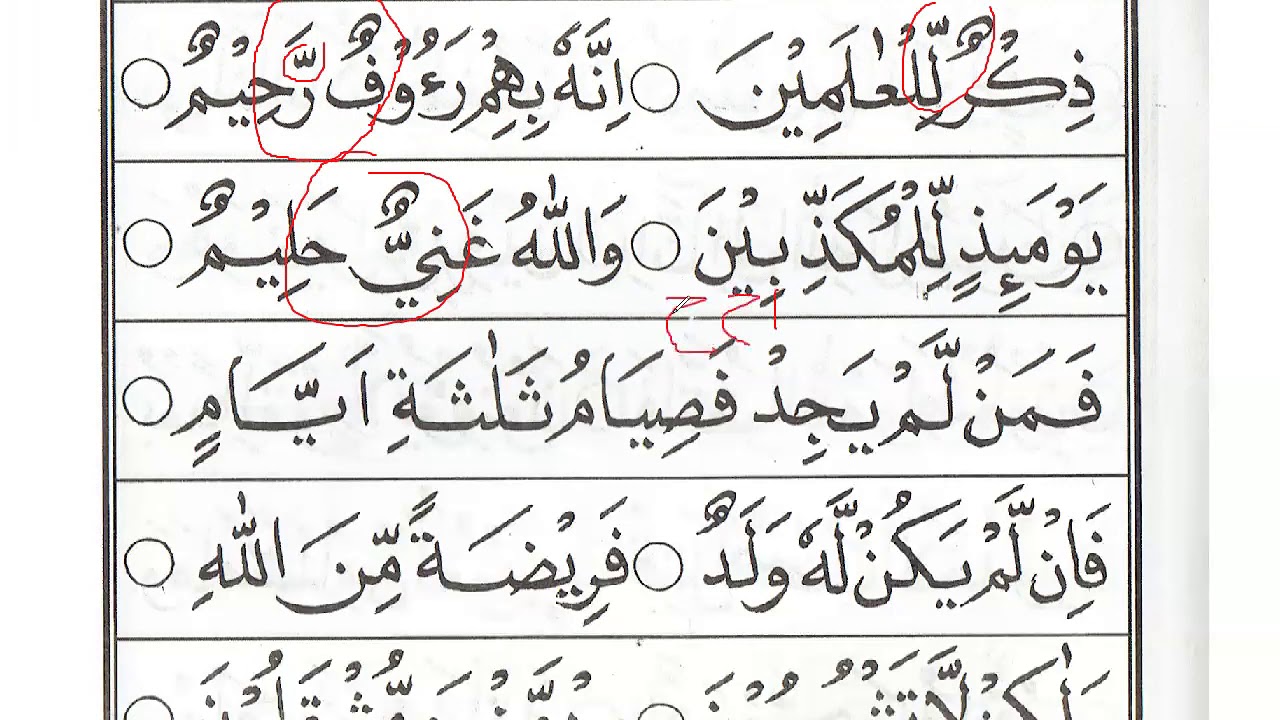 ذِكْرٌ لِّلْعٰلَمِيْنَ ○ اِنَّهٗ بِهِمْ رَءُوْفٌ رَّحِيْمٌ ○
يَوْمَئِذٍ لِّلْمُكَذِّبِيْنَ ○ وَاللّٰهُ غَنِيٌّ حَلِيْمٌ ○
فَمَنْ لَّمْ يَجِدْ فَصِيَامُ ثَلٰثَةِ اَيَّامٍ ○
فَاِنْ لَّمْ يَكُنْ لَّهٗ وَلَدٌ ○ فَرِيْضَةً مِّنَ اللّٰهِ ○